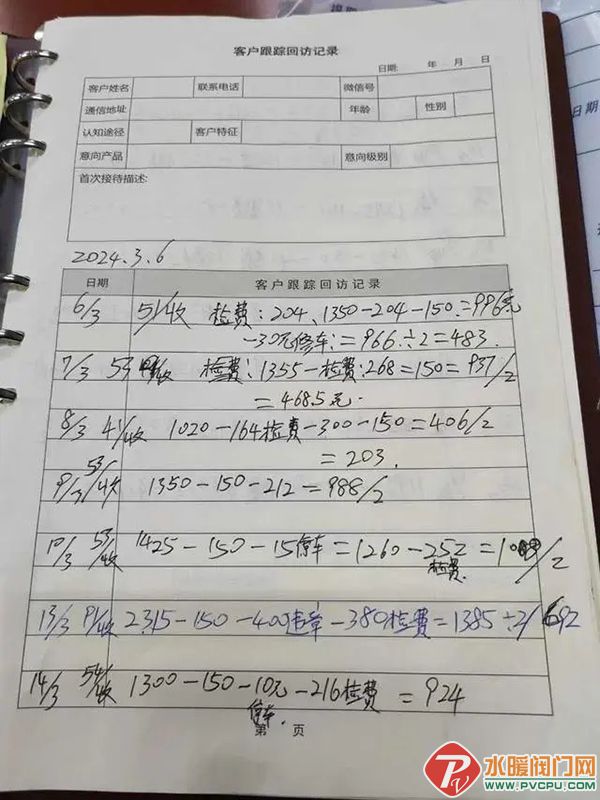 客户跟踪回访记录
日期: 年 月 日
客户姓名 联系电话 微信号
通信地址 年龄 性别
认知途径 客户特征
意向产品 意向级别
首次接待描述:
2024.3.6
日期 客户跟踪回访记录
6/3 51/收 检费:204、1350-204-150=996元
-30元停车:=966÷2=483.
7/3 53 收 检费:1355-检费:268=150=937/2
=468.5元.
8/3 41/收 1020-164检费-300-150=406/2
=203.
9/3 53/收 1350-150-212=988/2
10/3 53/收 1425-150-15停车=1260-252检费=10 /2
13/3 91/收 2315-150-400违章-380检费=1385÷2/692
14/3 54/收 1300-150-10元停车.-216检费=924
第 页
水暖阀门网
WWW.PVCPU.COM